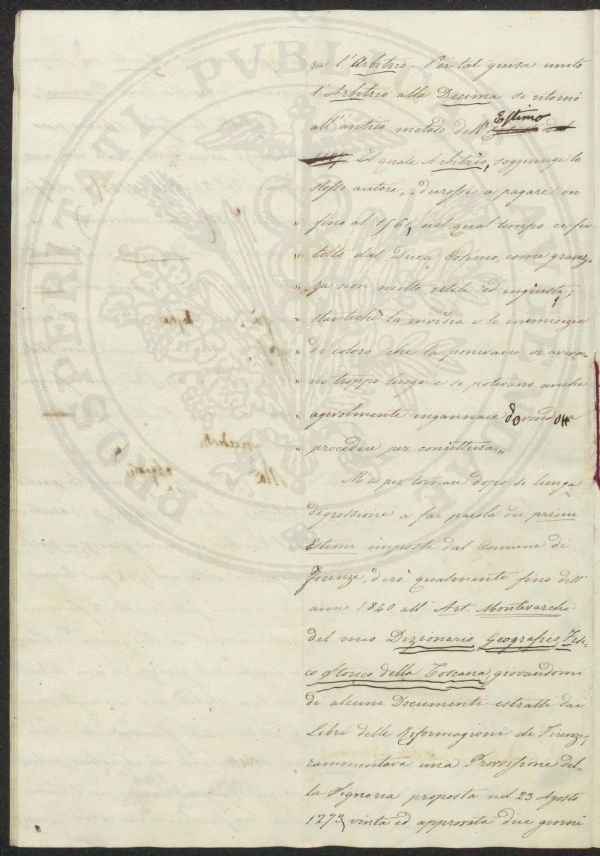 PROSPERITATI PVBLICAE
l'Arbitrio. Per tal guisa unito
l'Arbitrio alla Decima si ritornò
all'antico metodo dell'Estimo
Il quale Arbitrio, soggiunge lo
stesso autore, durossi a pagare in
" fino al 1561, nel qual tempo ci fu
" tolto dal Duca Cosimo, come gravez=
" za non molto utile ed ingiusta;
" stantiché la invidia e le inimicizie
" di coloro che la ponevano vi aveva=
" no troppo luogo e si potevano anche
" agevolmente ingannare dovendosi
" procedere per conjettura "
Ma per tornare dopo sì lunga
digressione a far parola dei primi
Estimi imposti dal Comune di
Firenze, dirò qualmente fino dell'
anno 1840 all'Art. Montevarchi
del mio Dizionario Geografico Fisi=
co Storico della Toscana, giovandomi
di alcuni Documenti estratti dai
Libri delle Riformagioni di Firenze,
rammentava una Provvisione del=
la Signoria proposta nel 23 Agosto
1273, vinta ed approvata due giorni